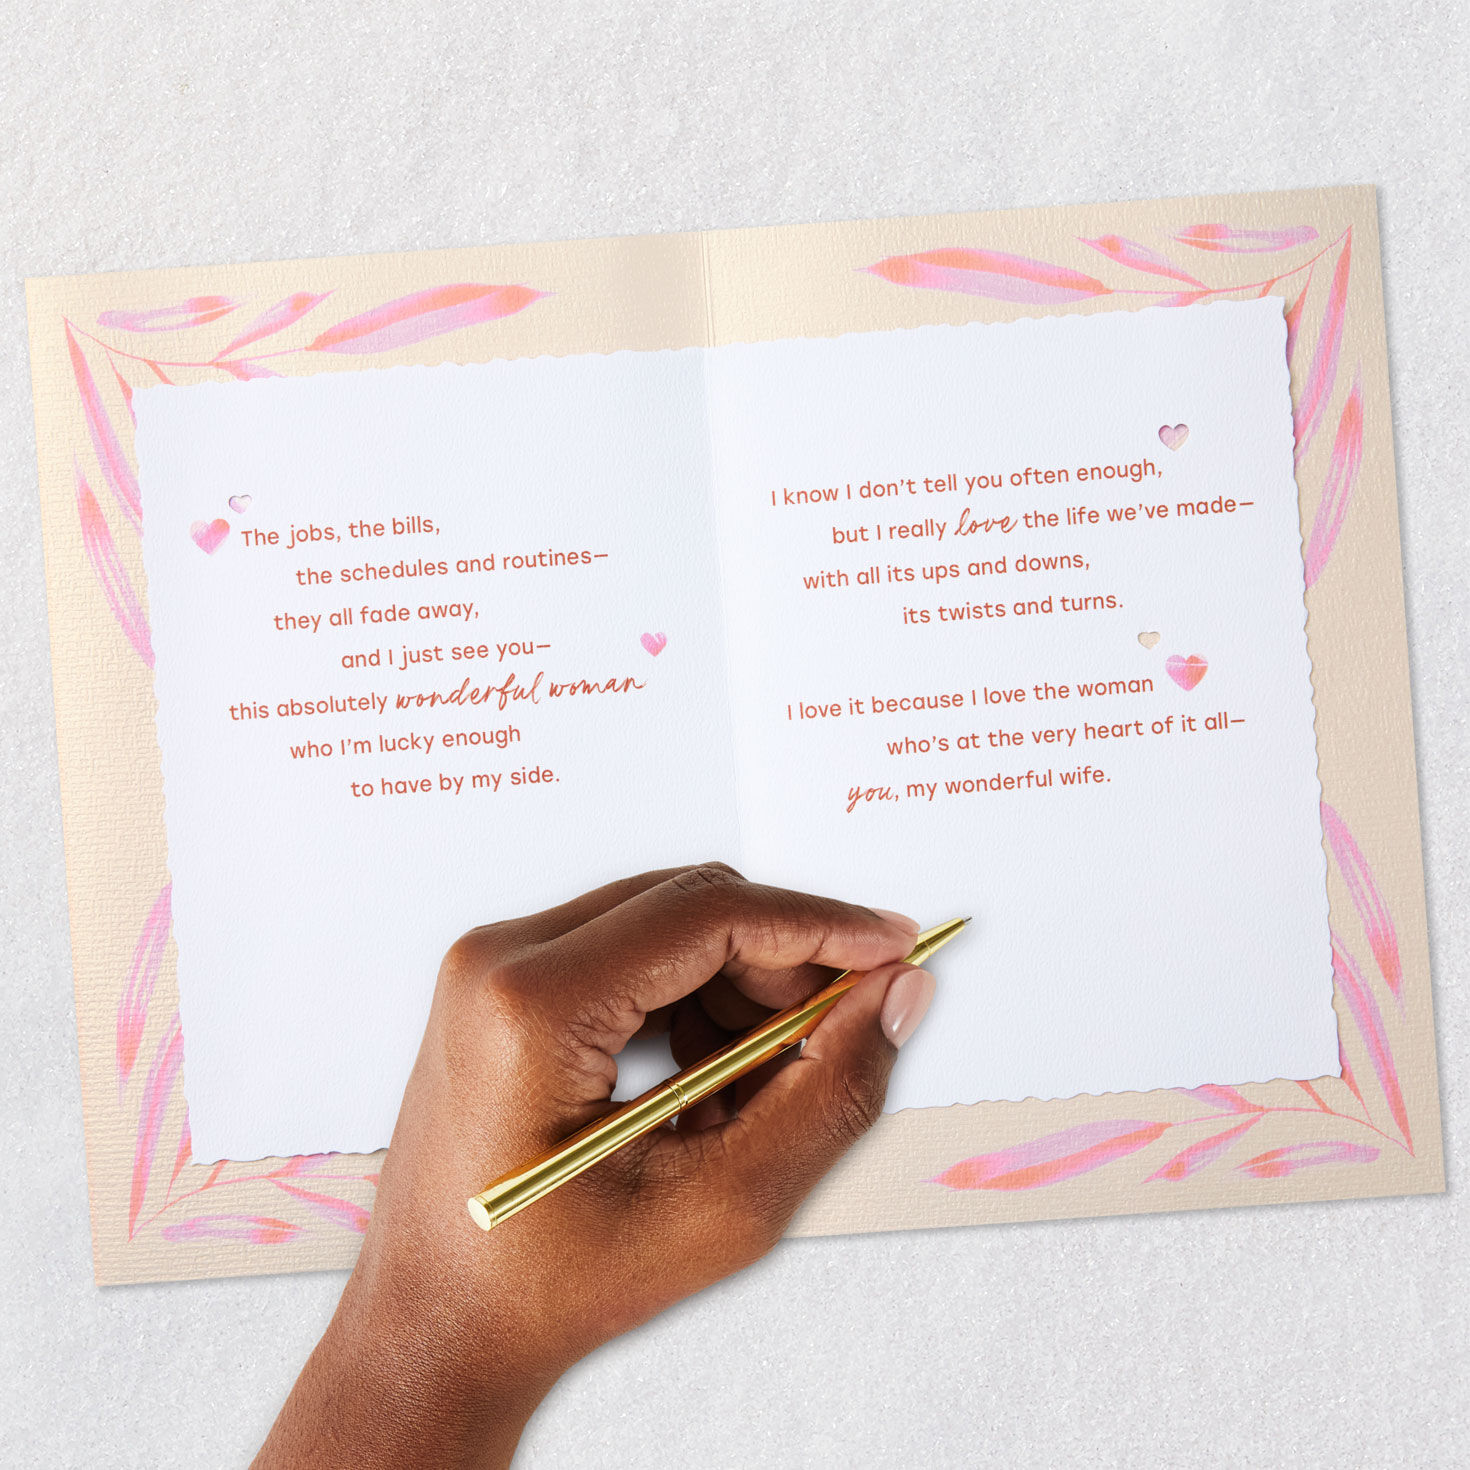 The jobs, the bills,
the schedules and routines—
they all fade away,
and I just see you—
this absolutely wonderful woman
who I'm lucky enough
to have by my side.
I know I don't tell you often enough,
but I really love the life we've made—
with all its ups and downs,
its twists and turns.
I love it because I love the woman
who's at the very heart of it all—
you, my wonderful wife.